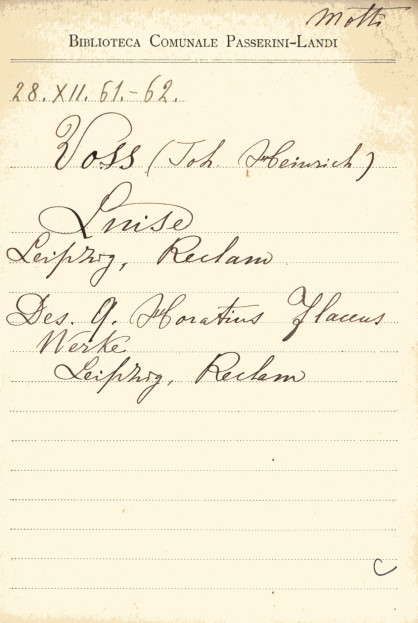 Motti
BIBLIOTECA COMUNALE PASSERINI-LANDI
28. XII. 61.-62.
Voss (Joh. Heinrich)
Luise
Leipzig, Reclam
Des. Q. Horatius Flaccus
Werke
Leipzig, Reclam
C